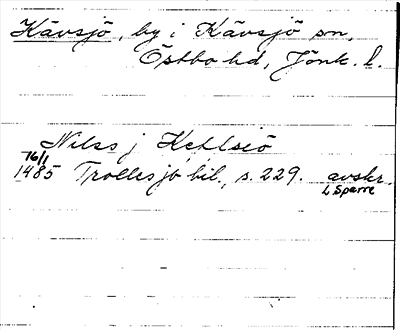 Kävsjö, by i Kävsjö sn,
Östbo hd, Jönk. l.
Nilss j Kehlsiö
16/1
1485 Trollesjö bil., s. 229. avskr.
L Sparre